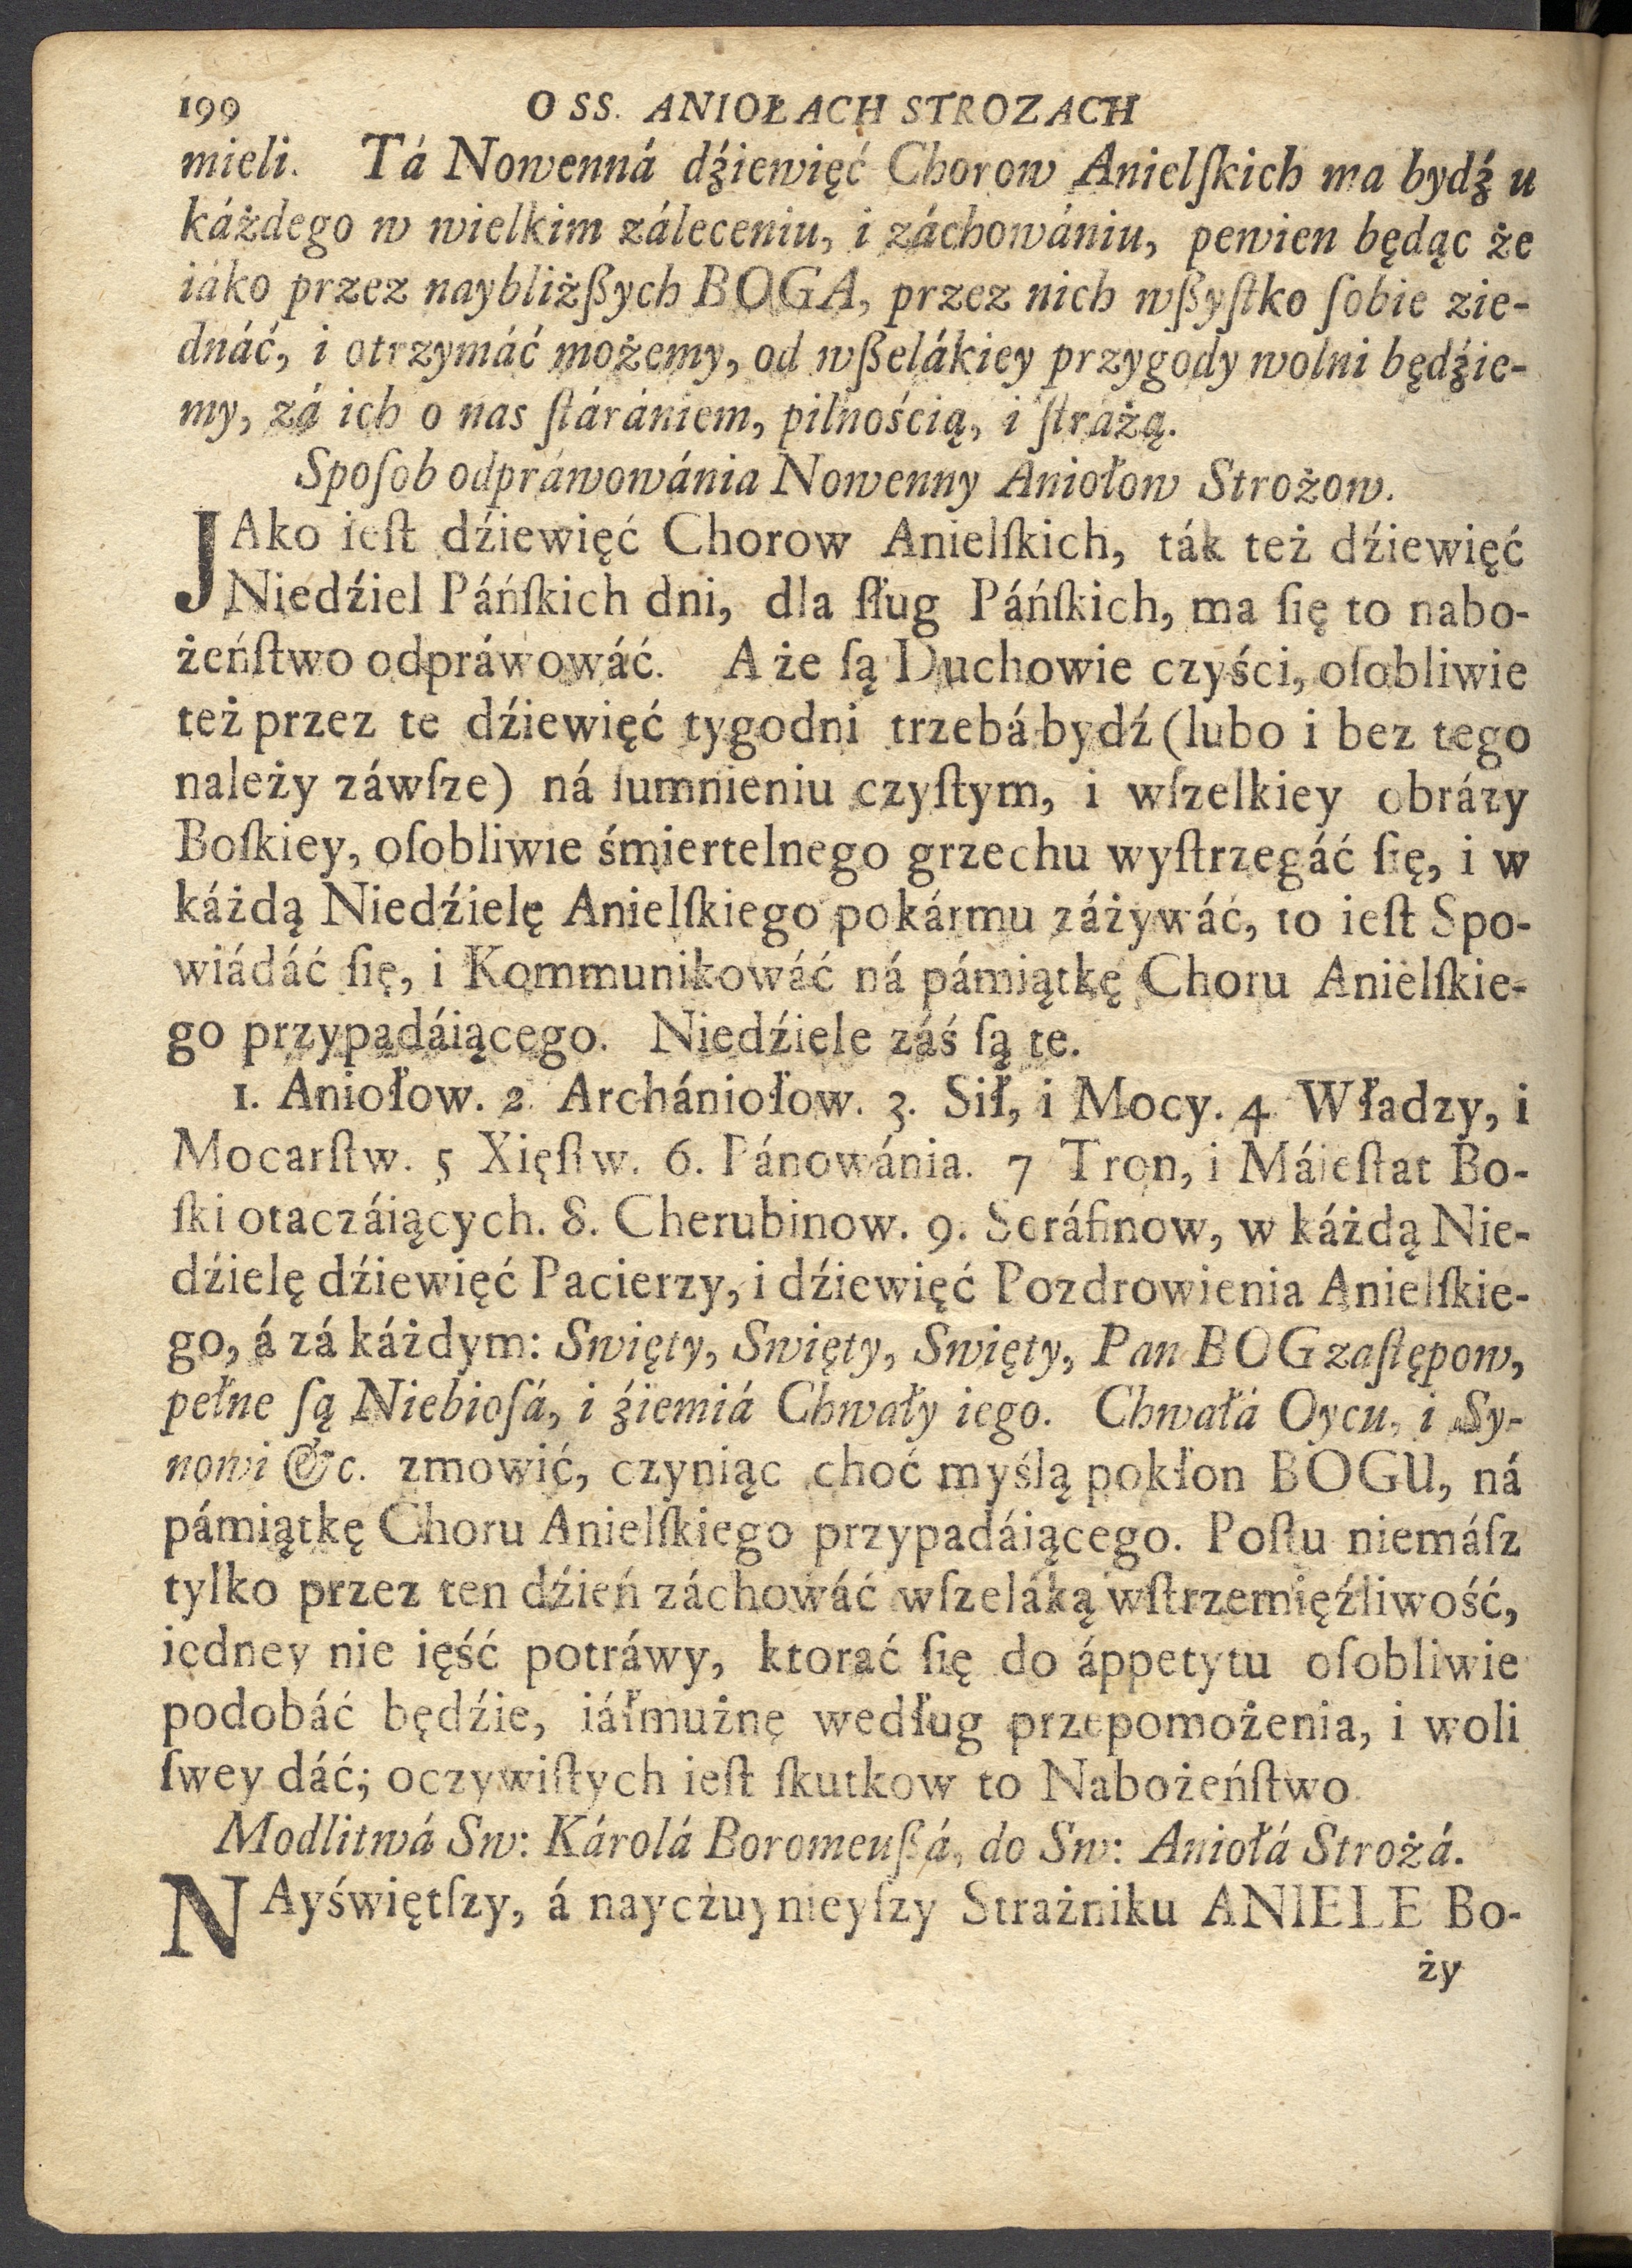 199 O SS. ANIOŁACH STROZACH
mieli. Tá Nowenná dźiewięć Chorow Anielſkich ma bydź u
káżdego w wielkim záleceniu, i záchowániu, pewien będąc że
iáko przez naybliżßych BOGA, przez nich wßyſtko ſobie zie-
dnáć, i otrzymáć możemy, od wßelákiey przygody wolni będźie-
my, zá ich o nas ſtárániem, pilnością, i ſtrażą.
Spoſob odpráwowánia Nowenny Aniołow Strożow.
JAko ieſt dźiewięć Chorow Anielſkich, ták też dźiewięć
Niedźiel Páńſkich dni, dla ſług Páńſkich, ma ſię to nabo-
żeńſtwo odpráwowáć. A że ſą Duchowie czyści, oſobliwie
też przez te dźiewięć tygodni trzebá bydź (lubo i bez tego
należy záwſze) ná ſumnieniu czyſtym, i wſzelkiey obrázy
Boſkiey, oſobliwie śmiertelnego grzechu wyſtrzegáć ſię, i w
káżdą Niedźielę Anielſkiego pokármu záżywáć, to ieſt Spo-
wiádáć ſię, i Kommunikowáć ná pámiątkę Choru Anielſkie-
go przypadáiącego. Niedźiele záś ſą te.
1. Aniołow. 2. Archániołow. 3. Sił, i Mocy. 4 Władzy, i
Mocarſtw. 5 Xięſtw. 6. Pánowánia. 7 Tron, i Máieſtat Bo-
ſki otaczáiących. 8. Cherubinow. 9. Seráfinow, w káżdą Nie-
dźielę dźiewięć Pacierzy, i dźiewięć Pozdrowienia Anielſkie-
go, á zá káżdym: Swięty, Swięty, Swięty, Pan BOG zaſtępow,
pełne ſą Niebioſá, i źiemiá Chwały iego. Chwałá Oycu, i Sy-
nowi &c. zmowić, czyniąc choć myślą pokłon BOGU, ná
pámiątkę Choru Anielſkiego przypadáiącego. Poſtu niemáſz
tylko przez ten dźień záchowáć wſzeláką wſtrzemięźliwość,
iedney nie ięść potráwy, ktorać ſię do áppetytu oſobliwie
podobáć będźie, iáłmużnę według przepomożenia, i woli
ſwey dáć; oczywiſtych ieſt ſkutkow to Nabożeńſtwo
Modlitwá Sw: Károlá Boromeußá, do Sw: Aniołá Strożá.
NAyświętſzy, á nayczuynieyſzy Strażniku ANIELE Bo-
ży